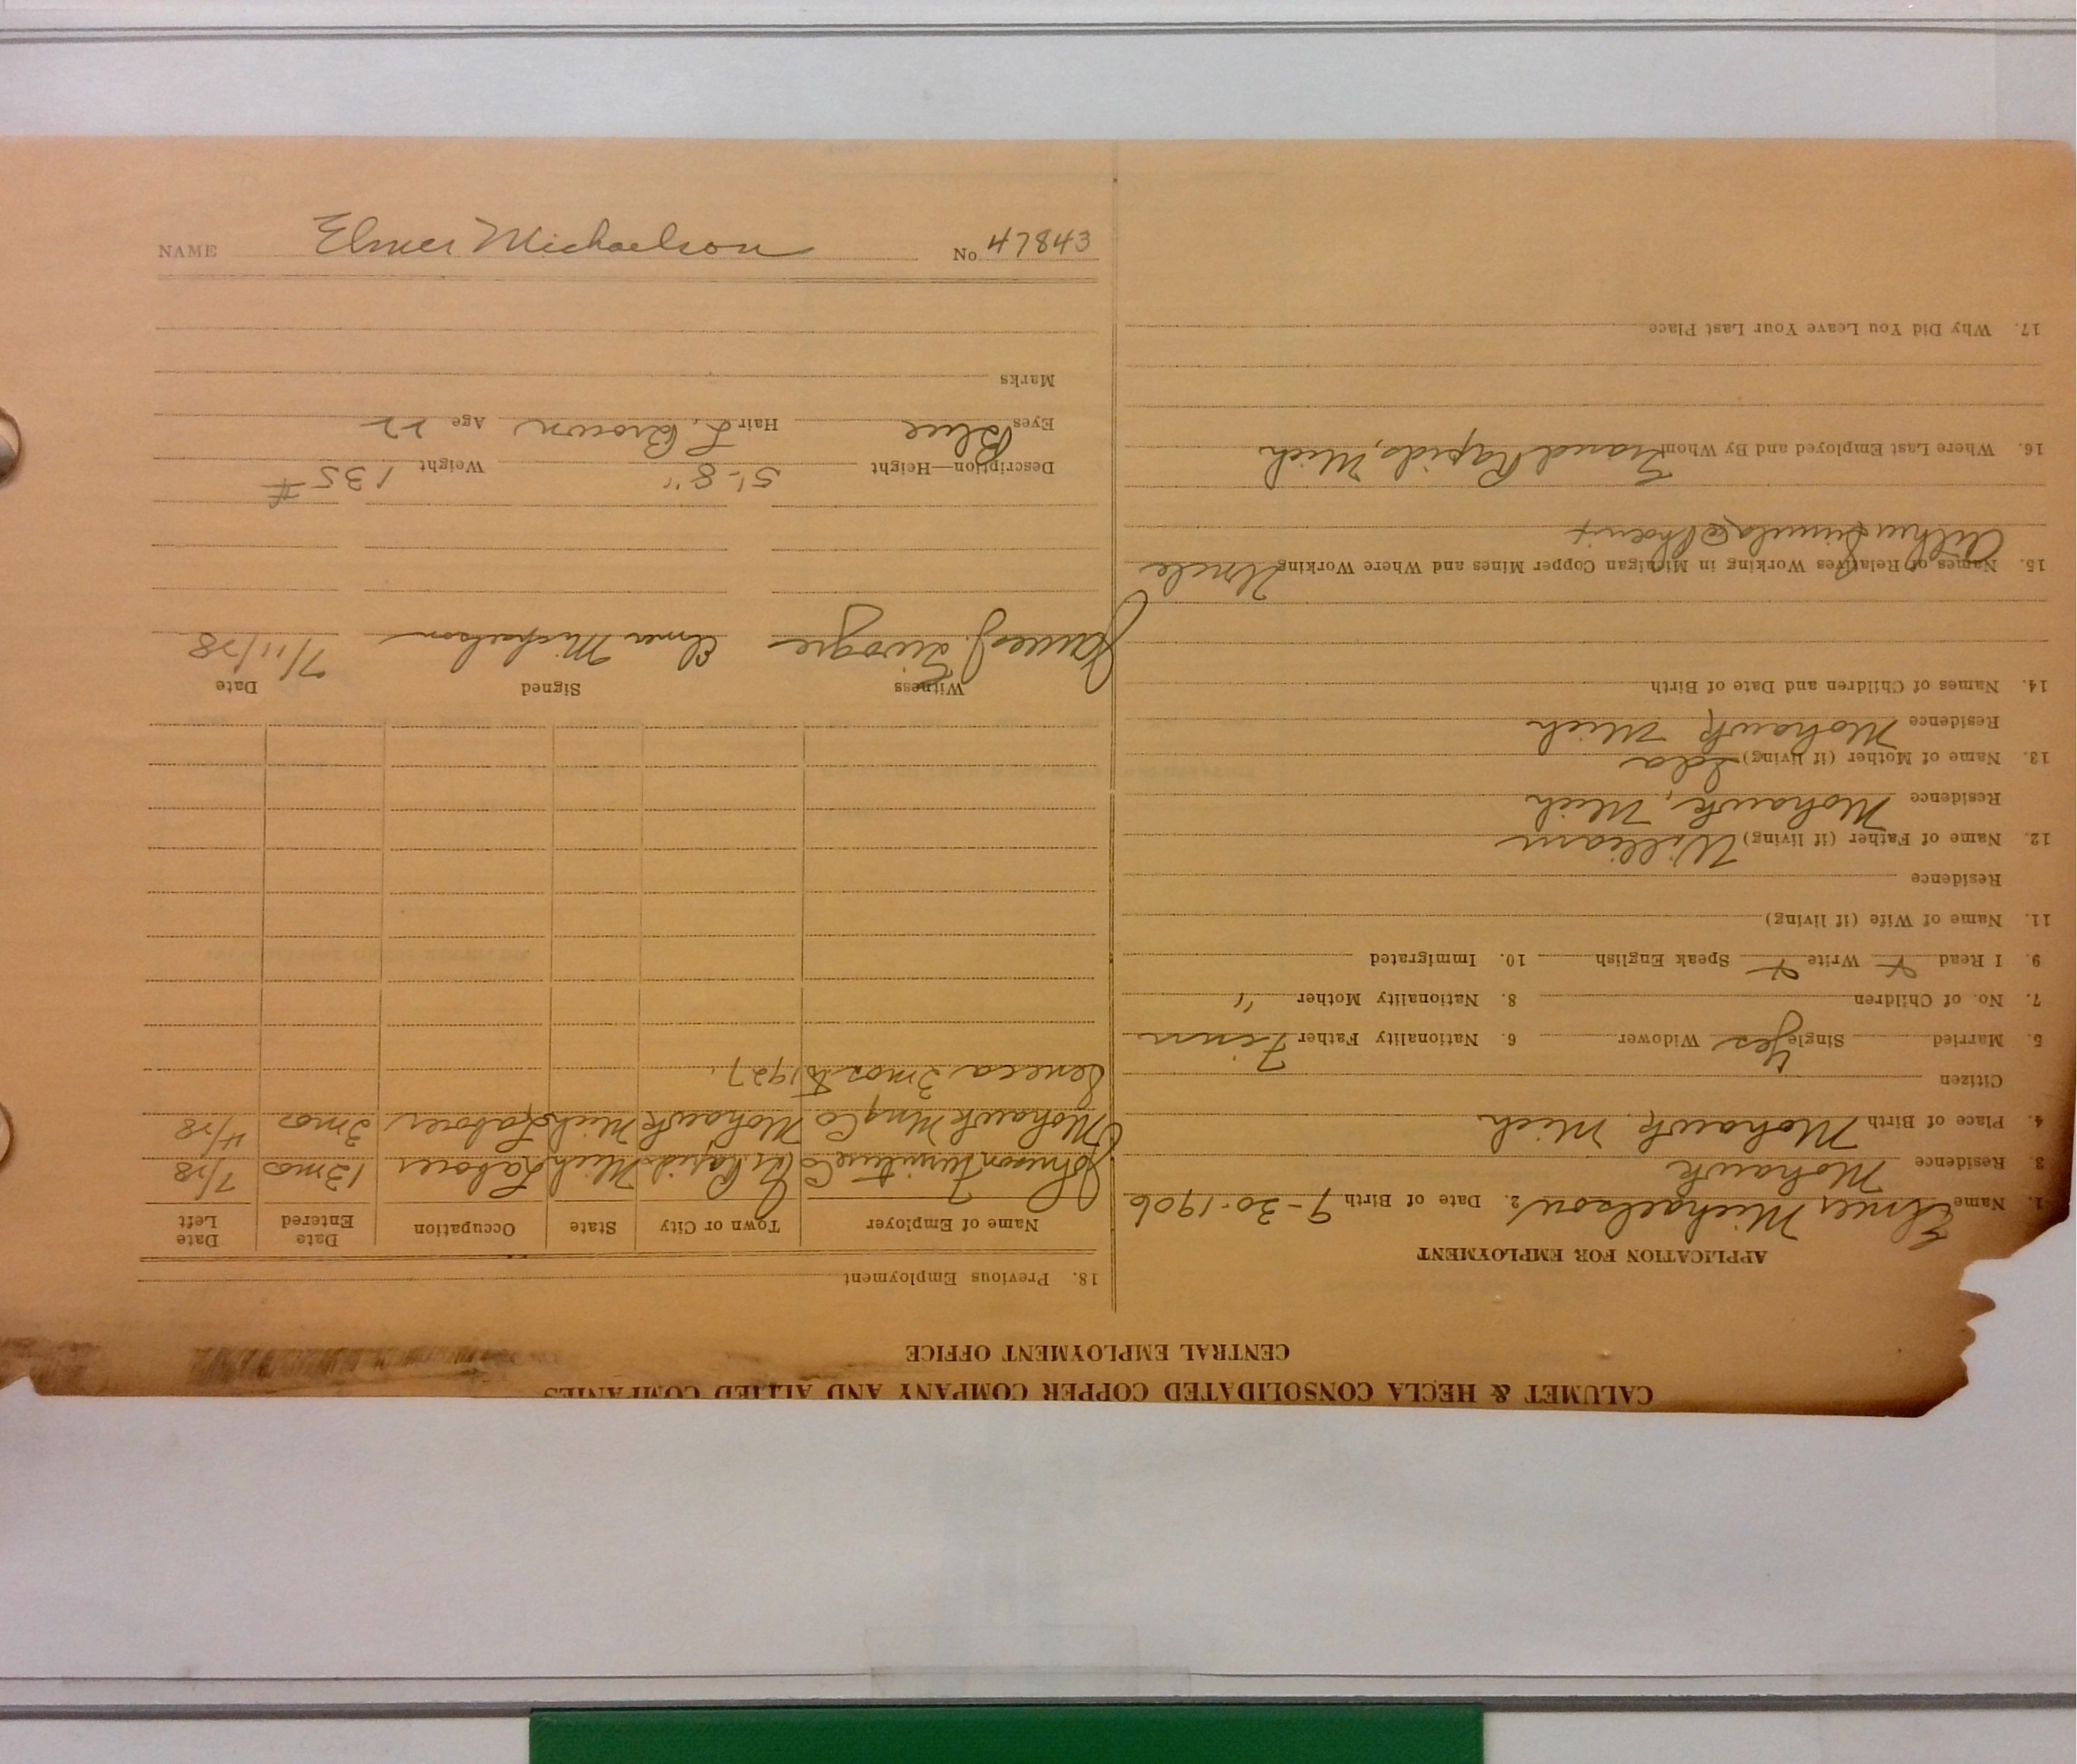 CALUMET & HECLA CONSOLIDATED COPPER COMPANY AND ALLIED COMPANIES
CENTRAL EMPLOYMENT OFFICE
APPLICATION FOR EMPLOYMENT
1. Name Elmer Michaelson 2. Date of Birth 9-30-1906
3. Residence Mohawk
4. Place of Birth Mohawk Mich
Citizen
5. Married Single Yes Widower 6. Nationality Father Finn
7. No. of Children 8. Nationality Mother "
9. I Read Write Speak English 10. Immigrated
11. Name of Wife (if living)
Residence
12. Name of Father (if living) William
Residence Mohawk, Mich
13. Name of Mother (if living) Ida
Residence Mohawk Mich
14. Names of Children and Date of Birth
15. Names of Relatives Working in Michigan Copper Mines and Where Working Uncle
16. Where Last Employed and By Whom Grand Rapids, Mich
17. Why Did You Leave Your Last Place
18. Previous Employment
Name of Employer Town or City State Occupation Date Entered Date Left
Johnson Furniture Co Gr Rapids Mich Laborer 13 mo 7/28
Mohawk Mng Co Mohawk Mich Laborer 3 mos 4/28
Seneca 3 mos 1927.
Witness Signed Date
James J. Elmer Michaelson 7/11/28
Description—Height 5'-8" Weight 135 #
Eyes Blue Hair L. Brown Age 22
Marks
NAME Elmer Michaelson No 47843